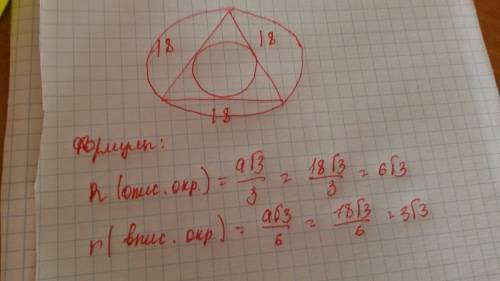 18 18
18
Формулы:
R (опис. окр.) = a√3/3 = 18√3/3 = 6√3
r (впис. окр.) = a√3/6 = 18√3/6 = 3√3